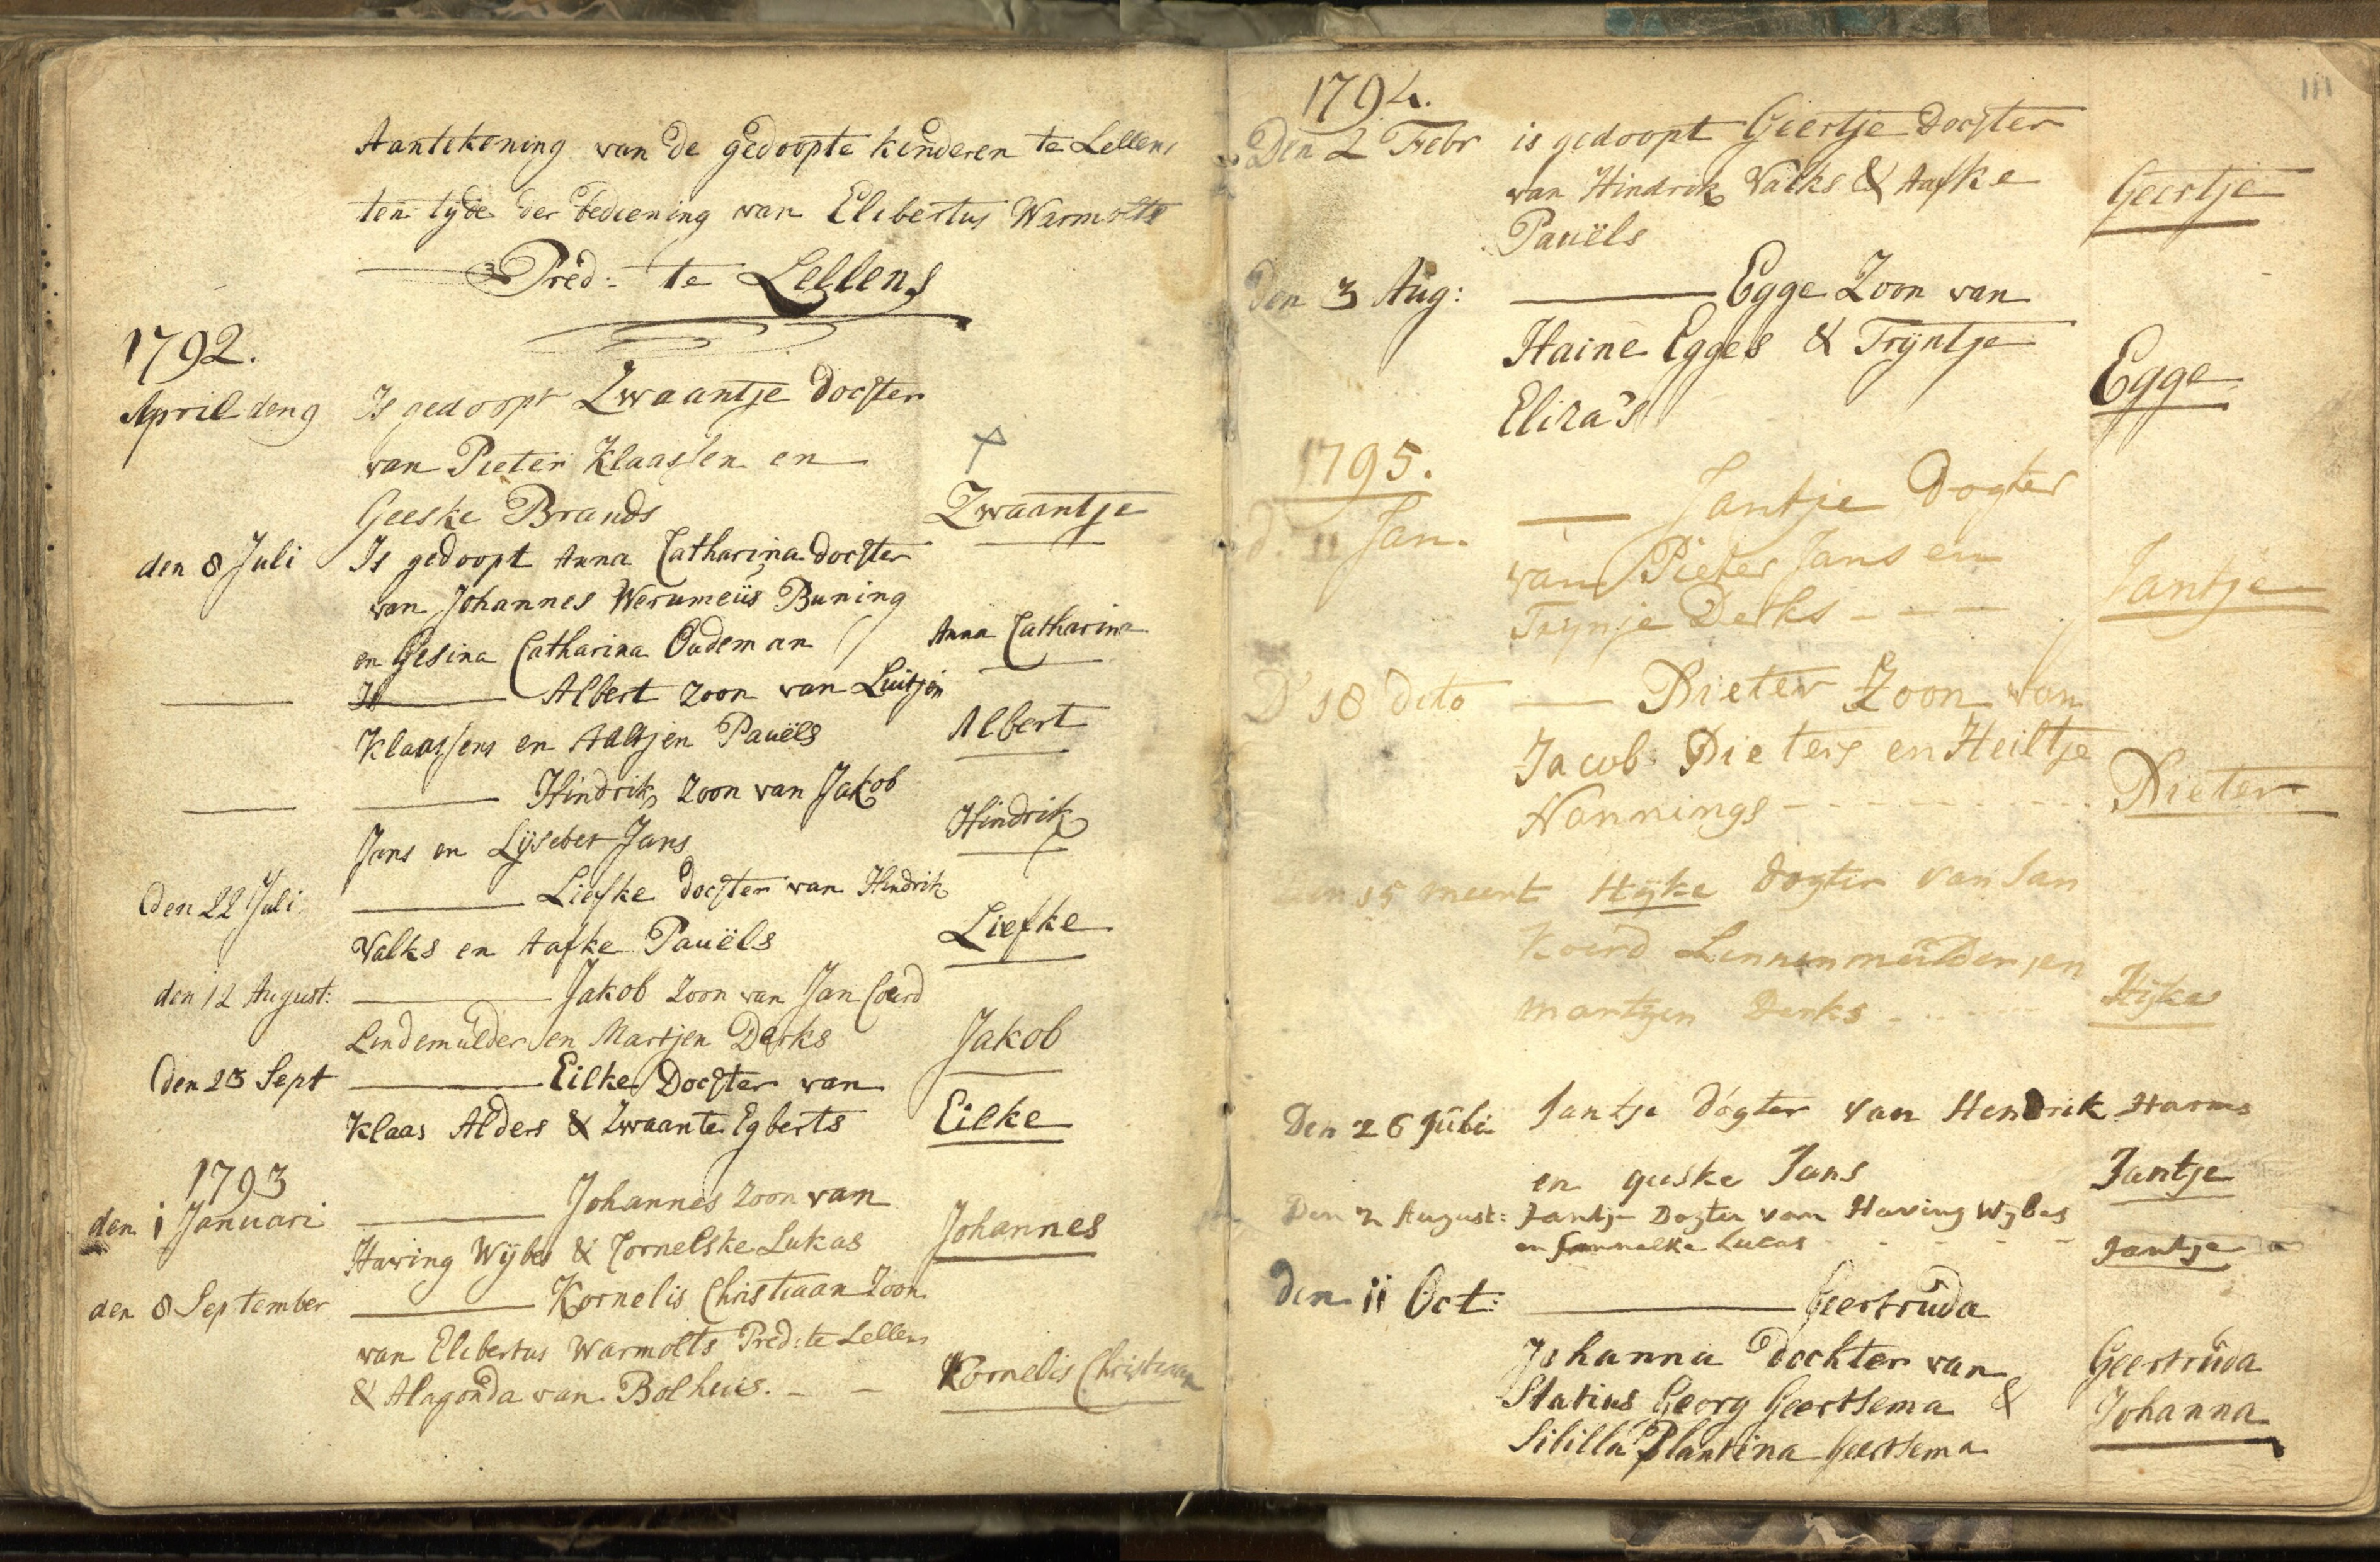 Aantekening van de gedoopte kinderen te Lellens
ten tyde der bediening van Elibertus Warmolts
Pred: te Lellens
1792.
April den 9 Is gedoopt Zwaantje dochter
van Pieter Klaassen en
Geeske Brands Zwaantje
den 8 Juli Is gedoopt Anna Catharina dochter
van Johannes Werumeüs Buning
en Gesina Catharina Oudeman Anna Catharina
Is Albert zoon van Luitjen
Klaassens en Aaltjen Pauëls Albert
Hindrik zoon van Jakob
Jans en Lijsebet Jans Hindrik
Den 22 Juli Liefke dochter van Hindrik
Valks en Aafke Pauëls Liefke
den 12 August: Jakob zoon van Jan Coerd
Lindemulder en Martjen Derks Jakob
Den 23 Sept Eilke Dochter van
Klaas Alders & Zwaante Egberts Eilke
1793
den 1 Januari Johannes zoon van
Having Wijbes & Cornelske Lukas Johannes
den 8 September Kornelis Christiaan Zoon
van Elibertus Warmolts Pred: te Lellens
& Alagonda van Bolhuis. - - Kornelis Christiaan
111
1794.
Den 2 Febr is gedoopt Geertje Dochter
van Hindrik Valks & Aafke
Pauëls Geertje
Den 3 Aug: Egge Zoon van
Haine Egges & Trijntje
Eliza's Egge
1795.
d. 11 Jan. Jantje Dogter
van Pieter Jans en
Trijnje Derks - - - Jantje
D 18 dito Pieter Zoon van
Jacob Pieters en Heiltje
Nannings - - - Pieter
15 meert Hijke dogter van Jan
Koerd Linnenmülder en
martjen Derks - - - Hijke
Den 26 Juli Jantje dogter van Hendrik Harms
en geeske Jans Jantje
Den 2 August: Jantje Dogter van Having Wybes
en Lucas - - - Jantje
den 11 Oct: Geertrúda
Johanna Dochter van Geertrúda
Statius Georg Geertsema & Johanna
Sibilla Plantina Geertsema